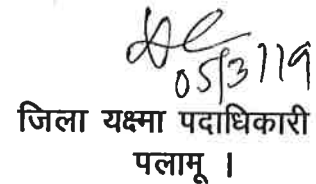 05/3/19
जिला यक्ष्मा पदाधिकारी
पलामू ।